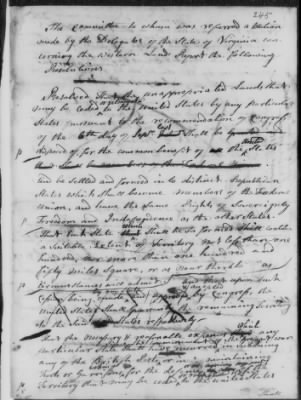 245
The Committee to whom was referred a Motion
made by the Delegates of the State of Virginia con
cerning the Western Land Report the following
Resolutions
Resolved that unappropriated Lands that
may be ceded to the United States by any particular
State pursuant to the recommendation of Congress
of the 6th day of Sept. last shall be
disposed of for the common benefit of the States
and be settled and formed into distinct Republican
States which shall become members of the Federal
Union, and have the same Rights of Sovereignty
Freedom and Independence as the other States.
That each State which shall be so formed shall contain
a suitable extent of Territory not less than one
hundred, nor more than one hundred and
fifty miles Square, or as near thereto as
Circumstances will admit.
Cession being made by Congress the
United States shall the remaining Territory
to the States respectively
That the necessary & reasonable expences any
particular State shall have incurred
any of the British Posts, or in maintaining
Forts or Garrisons for the defence
Territory that may be ceded to the United States
Shall